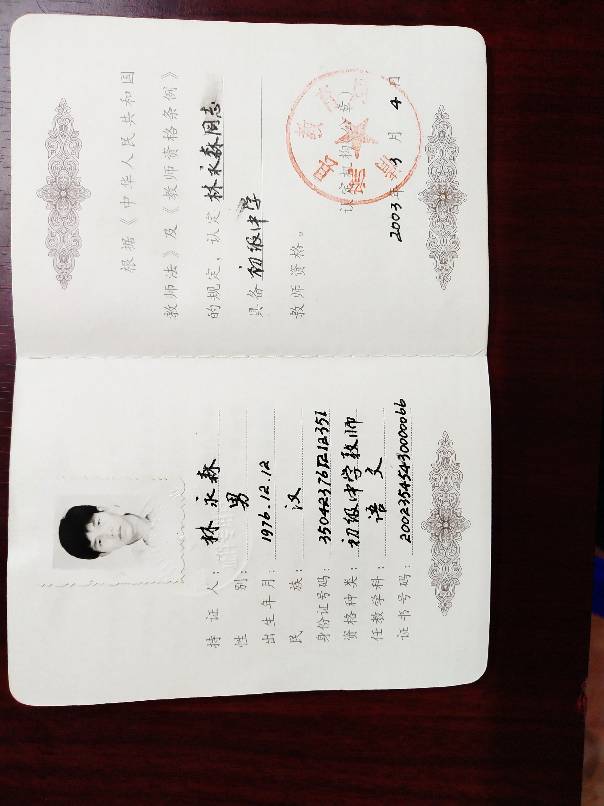 持证人：林永森
性别：男
出生年月：1976.12.12
民族：汉
身份证号码：350423761212351
资格种类：初级中学教师
任教学科：语文
证书号码：20023545430000066
根据《中华人民共和国
教师法》及《教师资格条例》
的规定，认定林永森同志
具备初级中学
教师资格。
认定机构
2003年3月4日